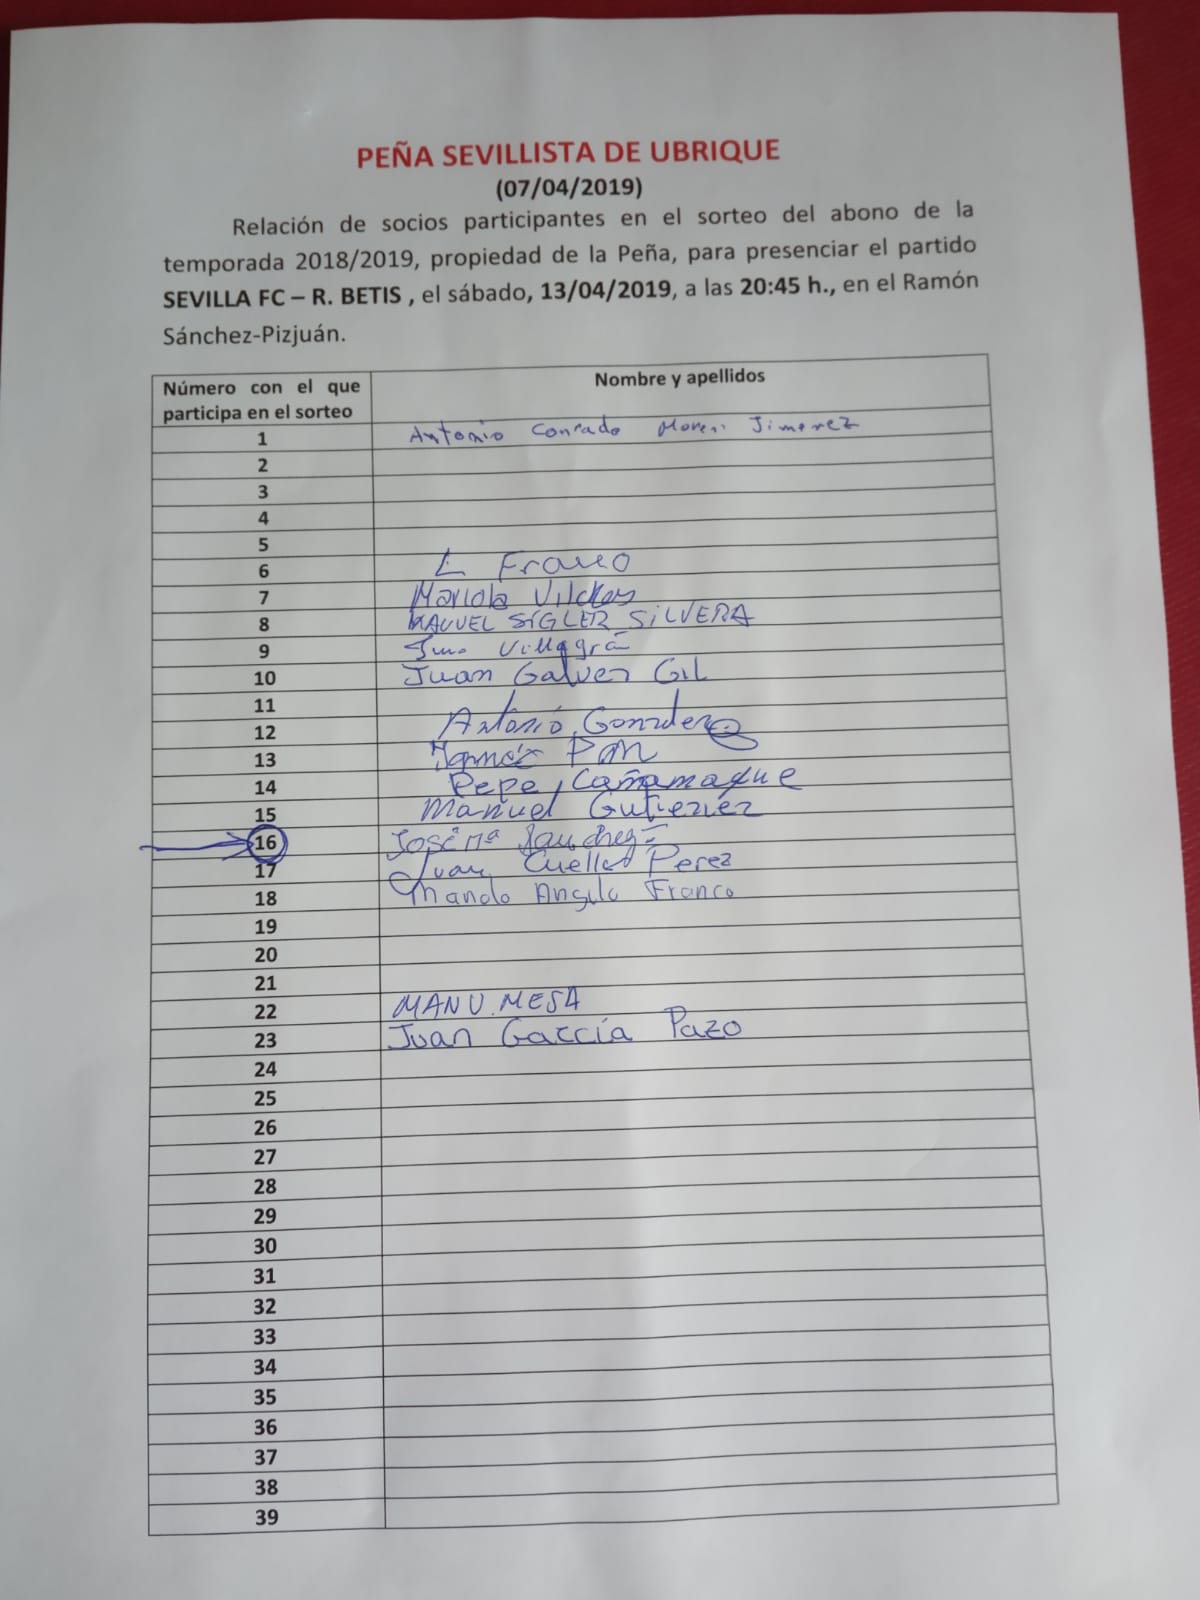 PEÑA SEVILLISTA DE UBRIQUE
(07/04/2019)
Relación de socios participantes en el sorteo del abono de la
temporada 2018/2019, propiedad de la Peña, para presenciar el partido
SEVILLA FC – R. BETIS , el sábado, 13/04/2019, a las 20:45 h., en el Ramón
Sánchez-Pizjuán.
Número con el que participa en el sorteo Nombre y apellidos
1 Antonio Conrado Jimenez
2
3
4
5
6 Franco
7 Mariola Vilches
8 MANUEL SIGLER SILVERA
9 Villagrá
10 Juan Galvez Gil
11
12 Antonio Gonzalez
13
14 Pepe Cañamaque
15 Manuel Gutierrez
16 José Mª Sanchez
17 Juan Cuellar Perez
18 Manolo Angulo Franco
19
20
21
22 MANU. MESA
23 Juan García Pazo
24
25
26
27
28
29
30
31
32
33
34
35
36
37
38
39